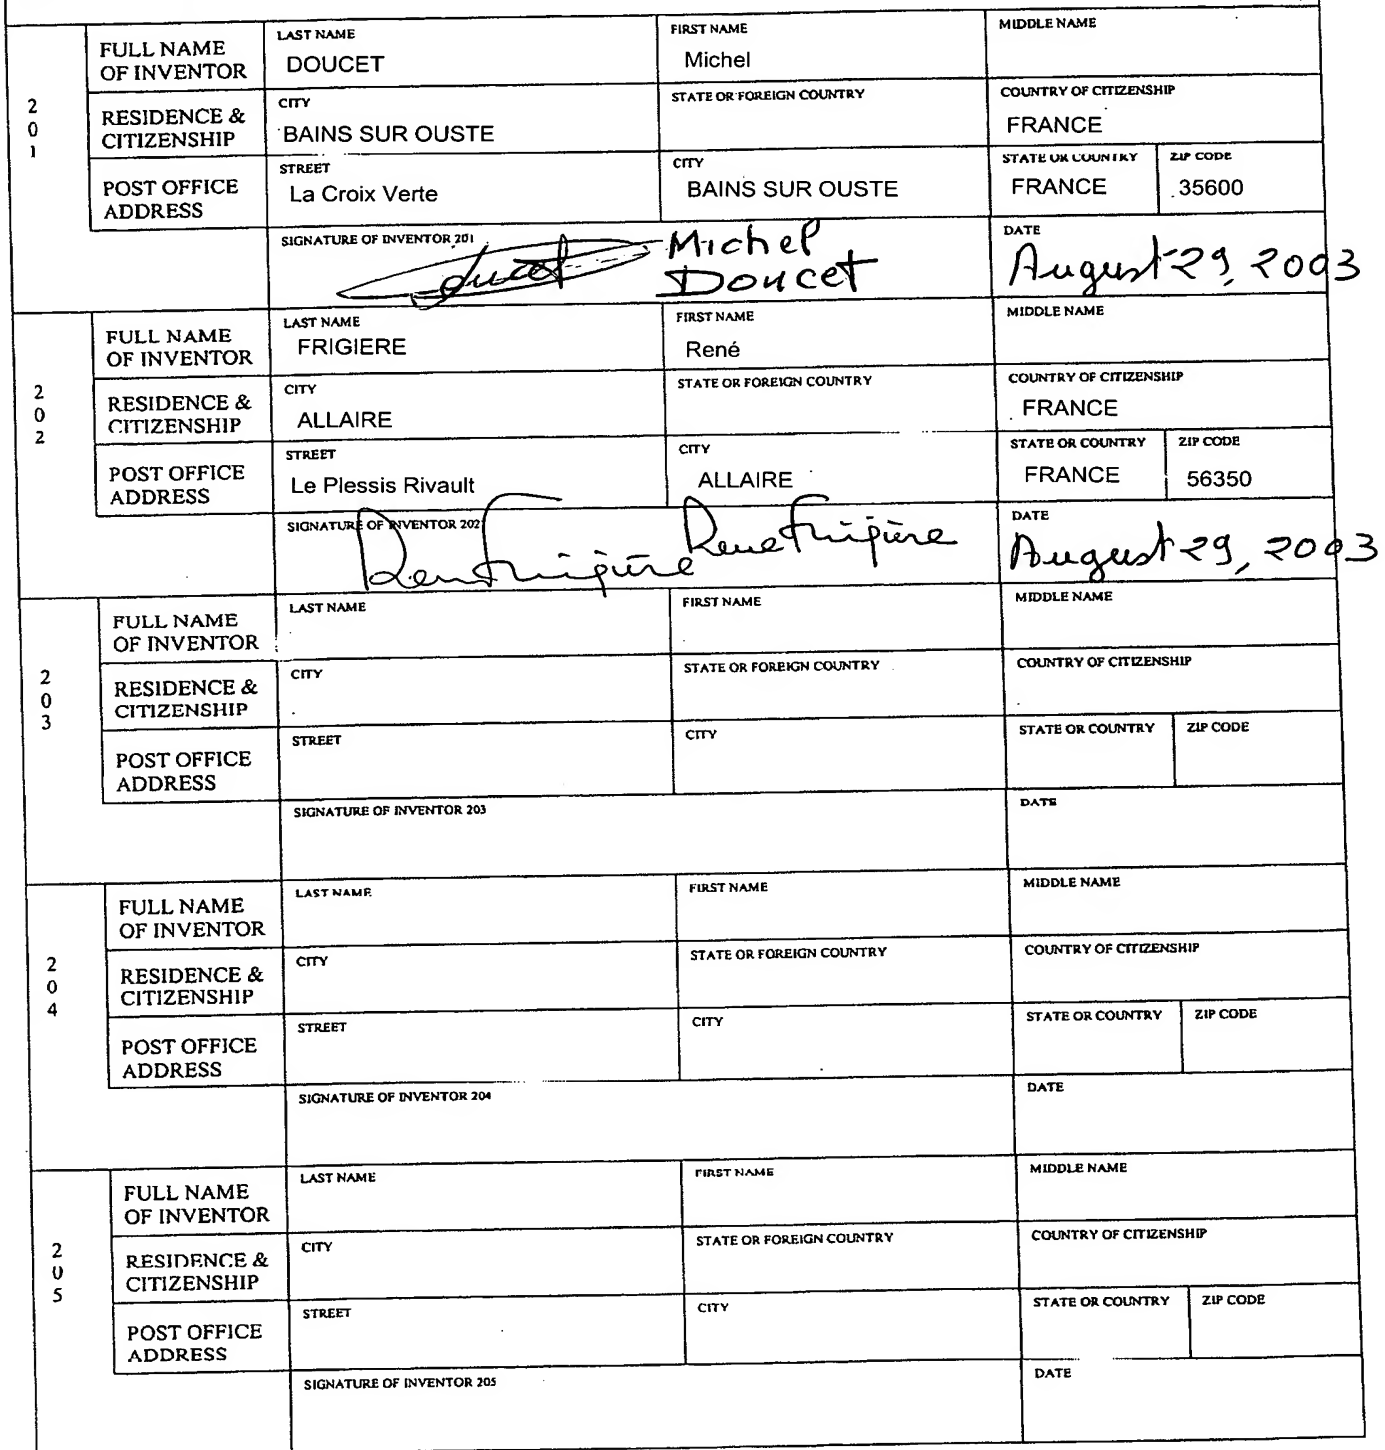 201
FULL NAME OF INVENTOR
LAST NAME
DOUCET
FIRST NAME
Michel
MIDDLE NAME
RESIDENCE & CITIZENSHIP
CITY
BAINS SUR OUSTE
STATE OR FOREIGN COUNTRY
COUNTRY OF CITIZENSHIP
FRANCE
POST OFFICE ADDRESS
STREET
La Croix Verte
CITY
BAINS SUR OUSTE
STATE OR COUNTRY
FRANCE
ZIP CODE
35600
SIGNATURE OF INVENTOR 201
Michel
Doucet
DATE
August 29, 2003
202
FULL NAME OF INVENTOR
LAST NAME
FRIGIERE
FIRST NAME
René
MIDDLE NAME
RESIDENCE & CITIZENSHIP
CITY
ALLAIRE
STATE OR FOREIGN COUNTRY
COUNTRY OF CITIZENSHIP
FRANCE
POST OFFICE ADDRESS
STREET
Le Plessis Rivault
CITY
ALLAIRE
STATE OR COUNTRY
FRANCE
ZIP CODE
56350
SIGNATURE OF INVENTOR 202
Rene Frigière
DATE
August 29, 2003
203
FULL NAME OF INVENTOR
LAST NAME
FIRST NAME
MIDDLE NAME
RESIDENCE & CITIZENSHIP
CITY
STATE OR FOREIGN COUNTRY
COUNTRY OF CITIZENSHIP
POST OFFICE ADDRESS
STREET
CITY
STATE OR COUNTRY
ZIP CODE
SIGNATURE OF INVENTOR 203
DATE
204
FULL NAME OF INVENTOR
LAST NAME
FIRST NAME
MIDDLE NAME
RESIDENCE & CITIZENSHIP
CITY
STATE OR FOREIGN COUNTRY
COUNTRY OF CITIZENSHIP
POST OFFICE ADDRESS
STREET
CITY
STATE OR COUNTRY
ZIP CODE
SIGNATURE OF INVENTOR 204
DATE
205
FULL NAME OF INVENTOR
LAST NAME
FIRST NAME
MIDDLE NAME
RESIDENCE & CITIZENSHIP
CITY
STATE OR FOREIGN COUNTRY
COUNTRY OF CITIZENSHIP
POST OFFICE ADDRESS
STREET
CITY
STATE OR COUNTRY
ZIP CODE
SIGNATURE OF INVENTOR 205
DATE